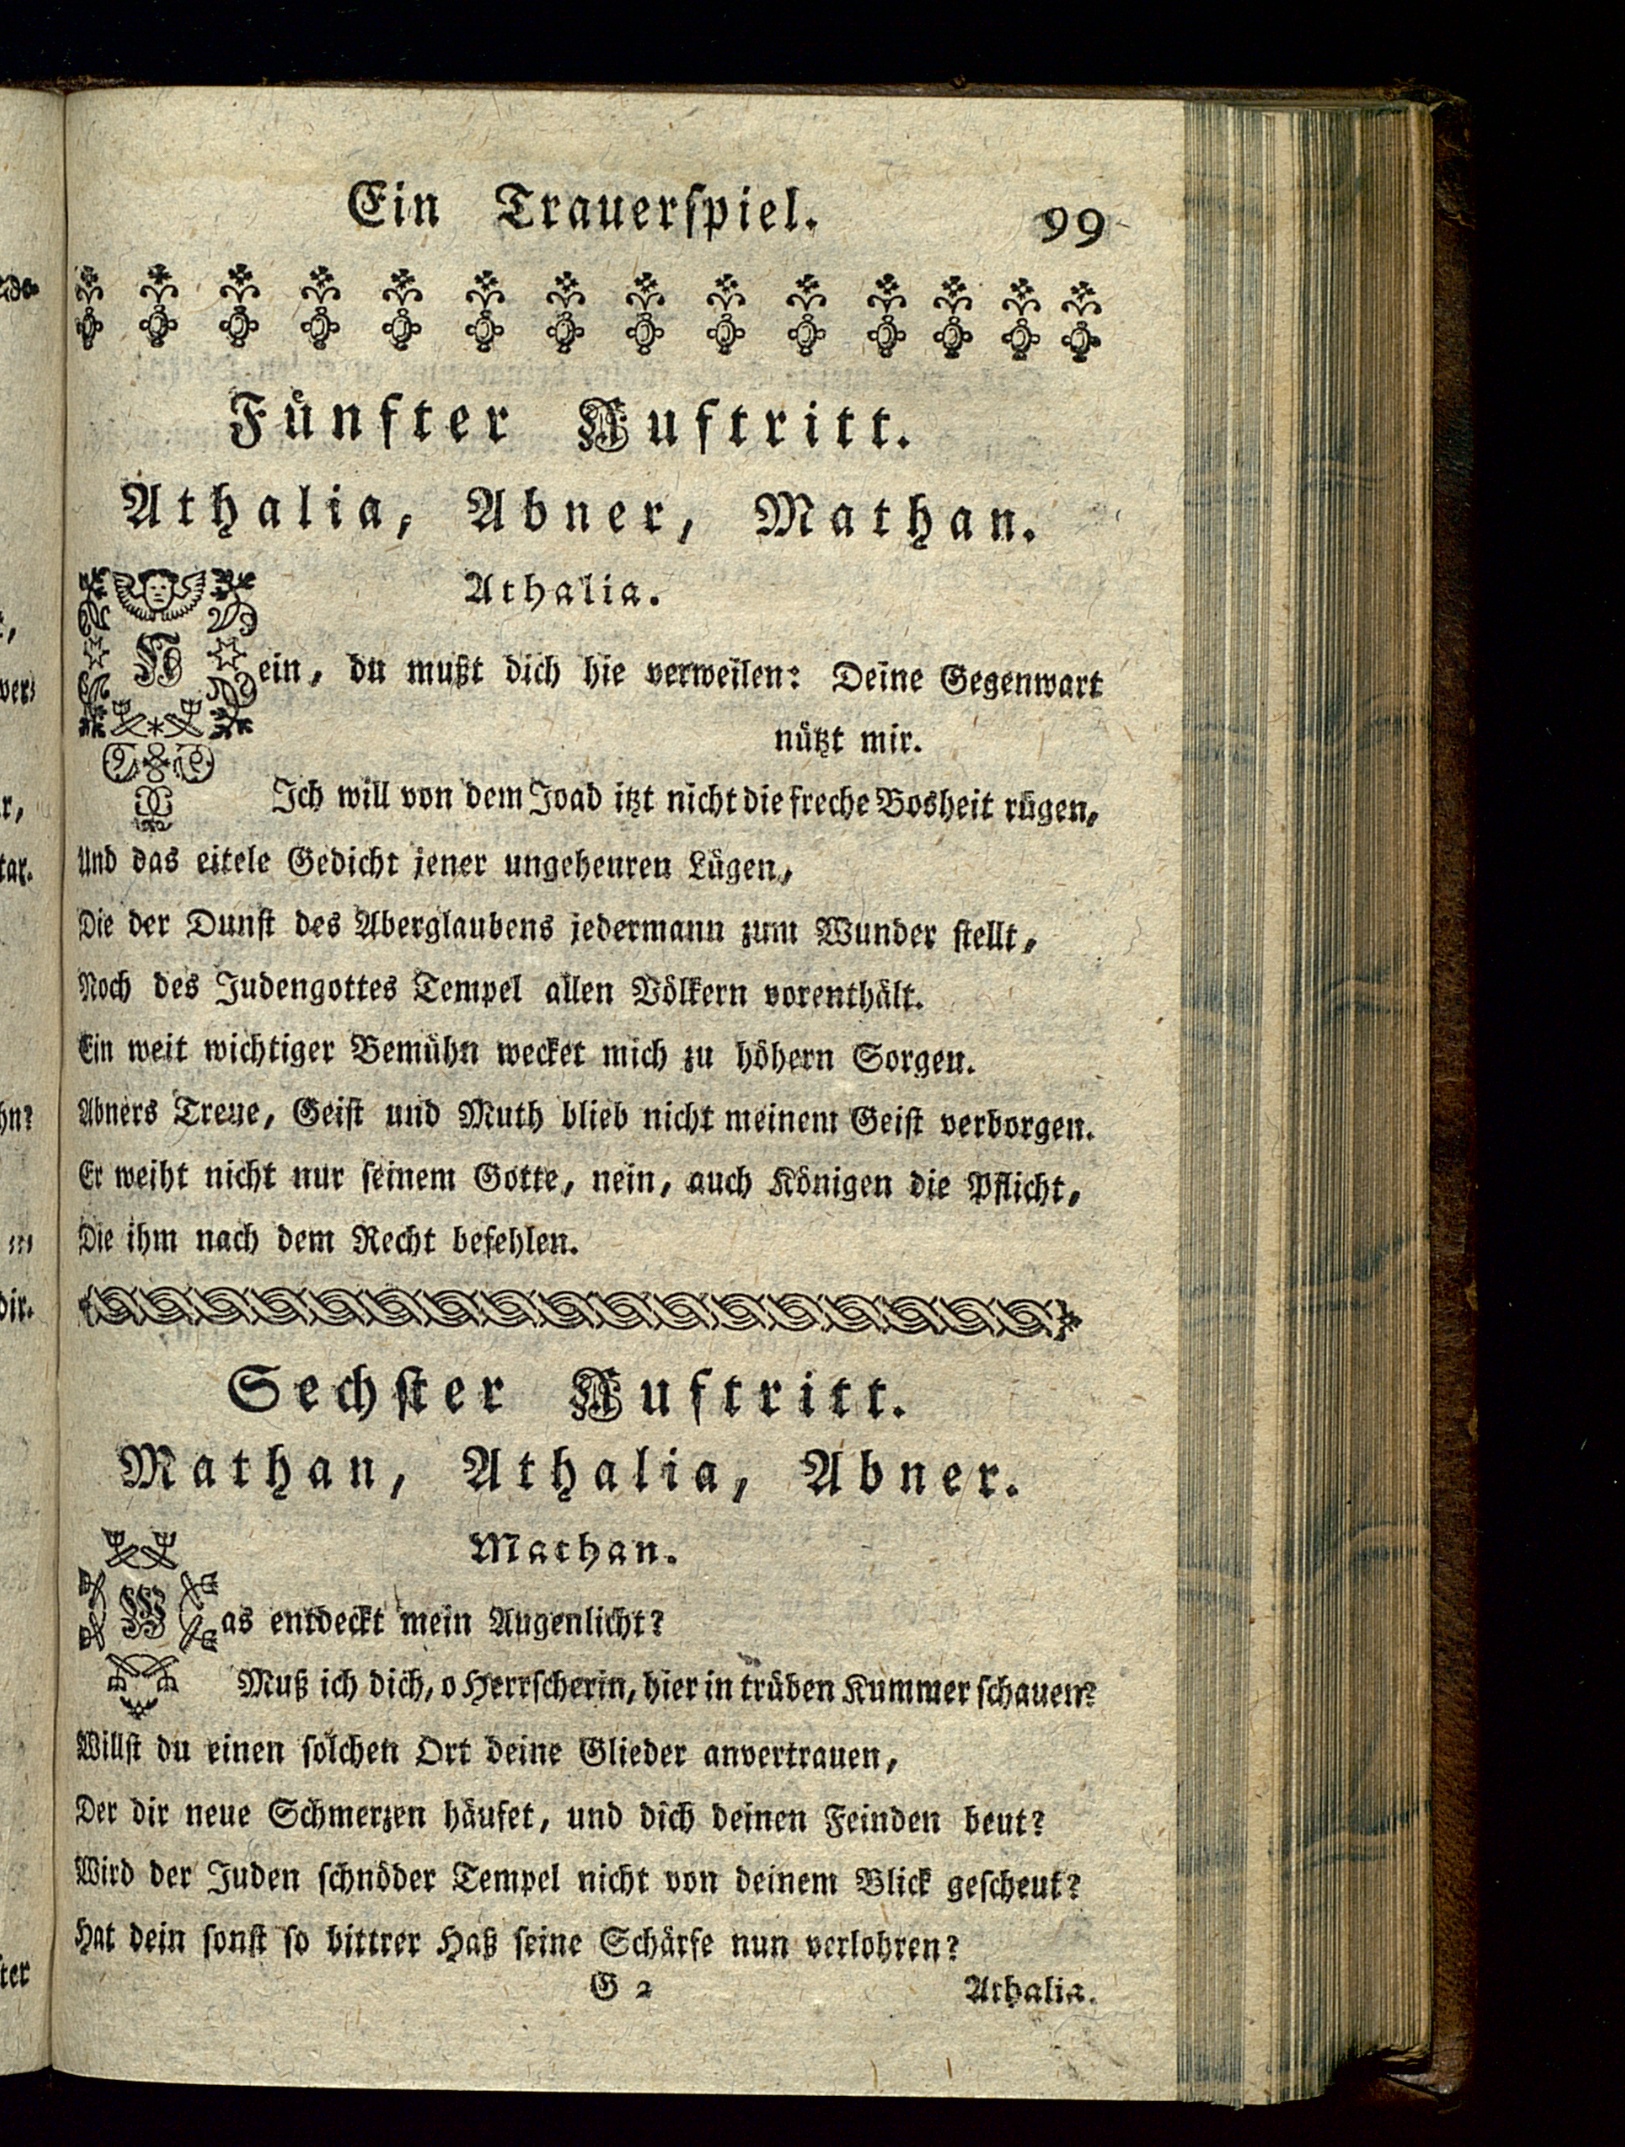 Ein Trauerspiel. 99
Fünfter Auftritt.
Athalia, Abner, Mathan.
Athalia.
Nein, du mußt dich hie verweilen: Deine Gegenwart
nützt mir.
Ich will von dem Joad itzt nicht die freche Bosheit rügen,
Und das eitele Gedicht jener ungeheuren Lügen,
Die der Dunst des Aberglaubens jedermann zum Wunder stellt,
Noch des Judengottes Tempel allen Völkern vorenthält.
Ein weit wichtiger Bemühn wecket mich zu höhern Sorgen.
Abners Treue, Geist und Muth blieb nicht meinem Geist verborgen.
Er weiht nicht nur seinem Gotte, nein, auch Königen die Pflicht,
Die ihm nach dem Recht befehlen.
Sechster Auftritt.
Mathan, Athalia, Abner.
Mathan.
Was entdeckt mein Augenlicht?
Muß ich dich, o Herrscherin, hier in trüben Kummer schauen?
Willst du einen solchen Ort deine Glieder anvertrauen,
Der dir neue Schmerzen häufet, und dich deinen Feinden beut?
Wird der Juden schnöder Tempel nicht von deinem Blick gescheut?
Hat dein sonst so bittrer Haß seine Schärfe nun verlohren?
G 2 Athalia.